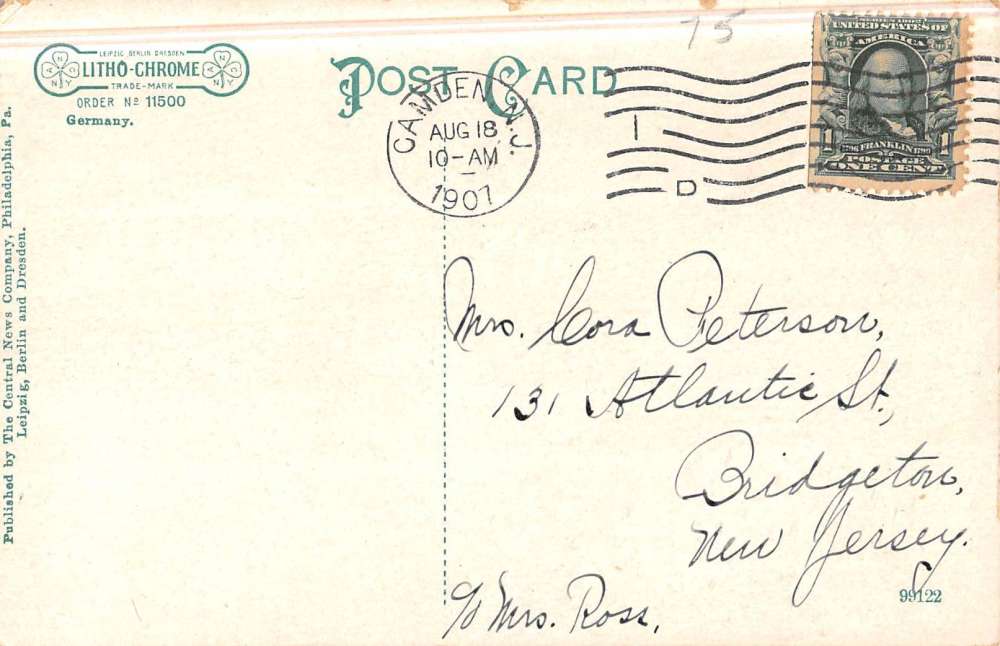 75
LEIPZIG BERLIN DRESDEN
LITHO-CHROME
TRADE-MARK
ANG NY
ANG NY
ORDER Nº 11500
Germany.
POST CARD
CAMDEN, N.J.
AUG 18
10-AM
1907
1
D
SERIES 1902
UNITED STATES OF
AMERICA
1 1790 FRANKLIN 1790 1
POSTAGE
ONE CENT
Published by The Central News Company, Philadelphia, Pa.
Leipzig, Berlin and Dresden.
Mrs. Cora Peterson,
131 Atlantic St.,
Bridgeton,
New Jersey.
c/o Mrs. Ross,
99122